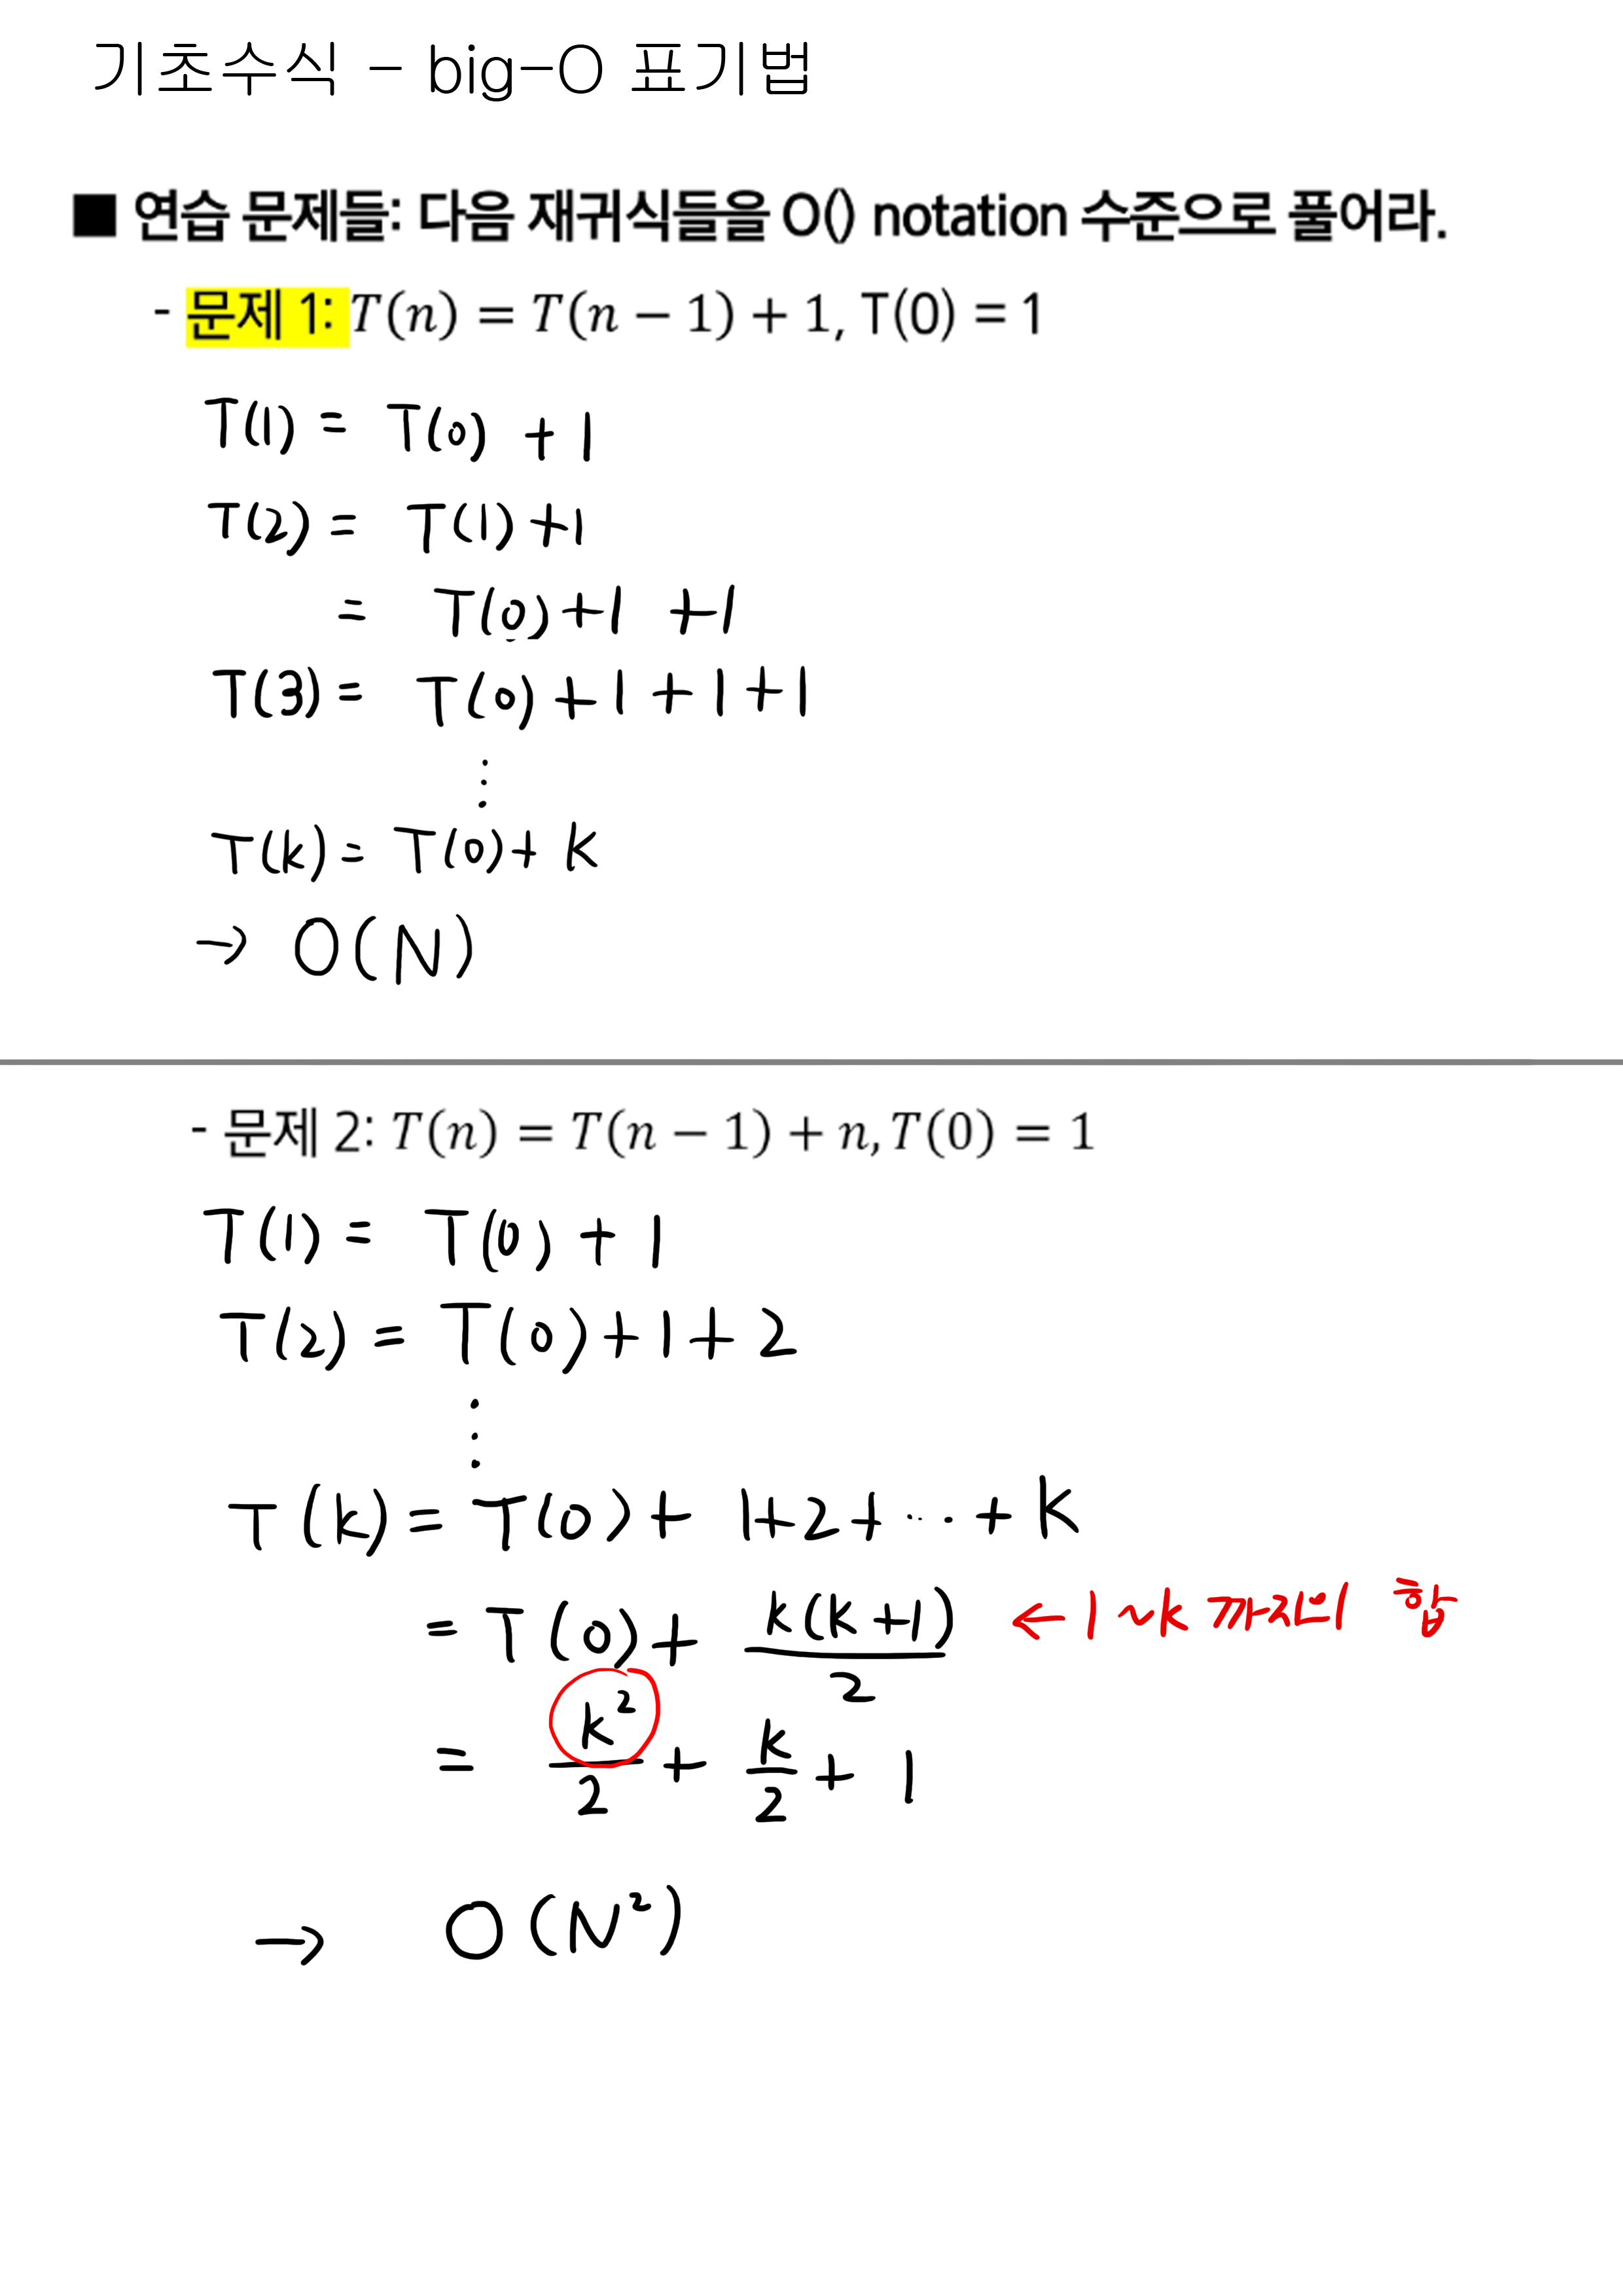 기초수식 - big-O 표기법
■ 연습 문제들: 다음 재귀식들을 O() notation 수준으로 풀어라.
- 문제 1: T(n) = T(n − 1) + 1, T(0) = 1
T(1) = T(0) + 1
T(2) = T(1) + 1
= T(0) + 1 + 1
T(3) = T(0) + 1 + 1 + 1
⋮
T(k) = T(0) + k
→ O(N)
- 문제 2: T(n) = T(n − 1) + n, T(0) = 1
T(1) = T(0) + 1
T(2) = T(0) + 1 + 2
⋮
T(k) = T(0) + 1 + 2 + ⋯ + k
= T(0) + k(k+1)/2 ← 1~k 까지의 합
= k²/2 + k/2 + 1
→ O(N²)